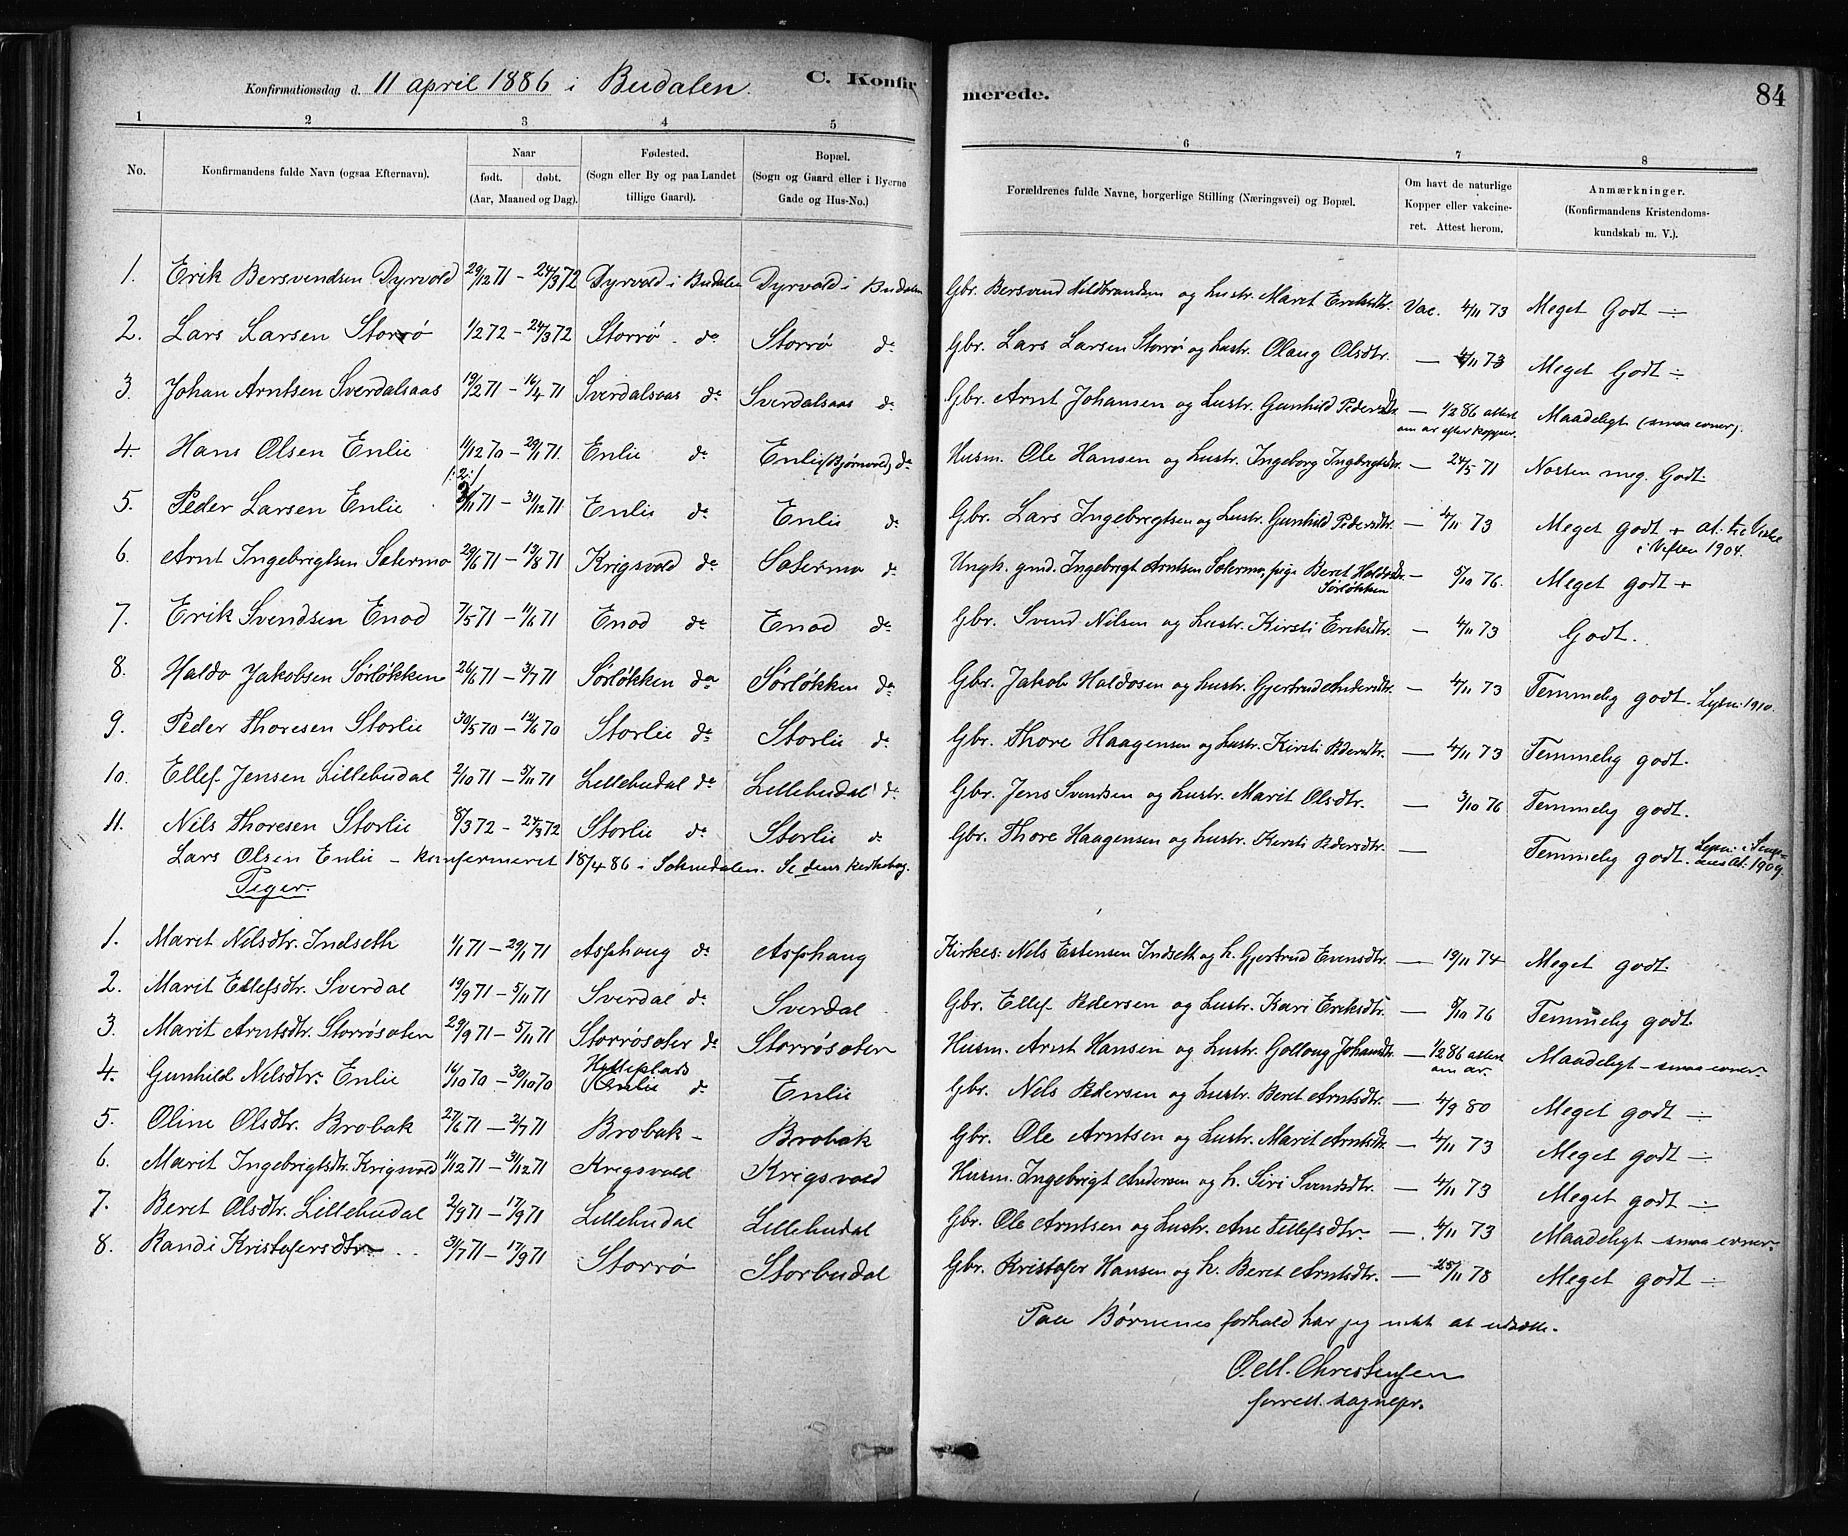 Konfirmationsdag d. 11 april 1886 i Budalen. C. Konfirmerede. 84
1 2 3 4 5 6 7 8
No. Konfirmandens fulde Navn (ogsaa Efternavn). Naar født. døbt. (Aar, Maaned og Dag). Fødested. (Sogn eller By og paa Landet tillige Gaard). Bopæl. (Sogn og Gaard eller i Byerne Gade og Hus-No.) Forældrenes fulde Navne, borgerlige Stilling (Næringsvei) og Bopæl. Om havt de naturlige Kopper eller vakcineret. Attest herom. Anmærkninger. (Konfirmandens Kristendomskundskab m. V.).
1. Erik Bersvendsen Dyrvold 29/12 71 – 24/3 72 Dyrvold i Budalen Dyrvold i Budalen Gbr. Bersvend Hildbrandsen og hustr. Maret Eriksdtr. Vac. 4/11 73 Meget Godt ÷
2. Lars Larsen Storrø 1/2 72 – 24/3 72 Storrø do Storrø do Gbr. Lars Larsen Storrø og hustr. Olaug Olsdtr. — 4/11 73 Meget Godt ÷
3. Johan Arntsen Sverdalsaas 19/2 71 – 16/4 71 Sverdalsaas do Sverdalsaas do Gbr. Arnt Johansen og hustr. Gunhild Pedersdtr. — 1/2 86 attest om ar efter kopper. Maadeligt (smaa evner).
4. Hans Olsen Enlie 11/12 70 – 29/1 71 Enlie do Enlie (Bjørnvold) do Husm. Ole Hansen og hustr. Ingeborg Ingebrigtsdtr. — 24/5 71 Næsten meg. Godt.
5. Peder Larsen Enlie /:2:/ 2/11 71 – 31/12 71 Enlie do Enlie do Gbr. Lars Ingebrigtsen og hustr. Gunhild Pedersdtr. — 4/11 73 Meget godt + at. til Vielse i Veften 1904.
6. Arnt Ingebrigtsen Sætermo 29/6 71 – 13/8 71 Krigsvold do Sætermo do Ungk. gmd. Ingebrigt Arntsen Sætermo, pige Beret Haldosdtr. Sørløkken — 5/10 76. Meget godt +
7. Erik Svendsen Enod 7/5 71 – 11/6 71 Enod do Enod do Gbr. Svend Nilsen og hustr. Kirsti Eriksdtr. — 4/11 73 Godt.
8. Haldo Jakobsen Sørløkken 26/6 71 – 3/7 71 Sørløkken do Sørløkken do Gbr. Jakob Haldosen og hustr. Gjertrud Andersdtr. — 4/11 73 Temmelig godt. Lysn. 1910.
9. Peder Thoresen Storlie 30/5 70 – 12/6 70 Storlie do Storlie do Gbr. Thore Haagensen og hustr. Kirsti Pedersdtr. — 4/11 73 Temmelig godt.
10. Ellef Jensen Lillebudal 2/10 71 – 5/11 71 Lillebudal do Lillebudal do Gbr. Jens Svendsen og hustr. Marit Olsdtr. — 3/10 76 Temmelig godt.
11. Nils Thoresen Storlie 8/3 72 – 24/3 72 Storlie do Storlie do Gbr. Thore Haagensen og hustr. Kirsti Pedersdtr. — Temmelig godt. Lysn. 1909.
Lars Olsen Enlie – konfermeret 18/4 86 i Soknedalen. Se dens kirkebog.
Piger.
1. Maret Nilsdtr. Indseth 1/1 71 – 29/1 71 Asphaug do Asphaug Kirkes: Nils Estensen Indseth og h. Gjertrud Evensdtr. — 19/11 74 Meget godt
2. Marit Ellefsdtr. Sverdal 19/9 71 – 5/11 71 Sverdal do Sverdal Gbr. Ellef Pedersen og hustr. Kari Eriksdtr. — 5/10 76 Temmelig godt.
3. Marit Arntsdtr. Storrøsæter 29/9 71 – 5/11 71 Storrøsæter do Storrøsæter Husm. Arnt Hansen og hustr. Gollaug Johansdtr. — 1/2 86 attest om ar. Maadeligt – smaa evner.
4. Gunhild Nilsdtr. Enlie 16/10 70 – 30/10 70 Enlie do Enlie Gbr. Nils Pedersen og hustr. Beret Arntsdtr. — 4/9 80 Meget godt ÷
5. Oline Olsdtr. Brobak 27/6 71 – 2/7 71 Brobak – Brobak Gbr. Ole Arntsen og hustr. Marit Arntsdtr. — 4/11 73 Meget godt ÷
6. Marit Ingebrigtsdtr. Krigsvold 11/12 71 – 31/12 71 Krigsvold Krigsvold Husm. Ingebrigt Andersen og h. Siri Svendsdtr. — 4/11 73 Meget godt ÷
7. Beret Olsdtr. Lillebudal 2/9 71 – 17/9 71 Lillebudal Lillebudal Gbr. Ole Arntsen og hustr. Ane Tellefsdtr. — 4/11 73 Maadeligt – smaa evner.
8. Randi Kristofersdtr. 31/7 71 – 17/9 71 Storrø Storbudal Gbr. Kristofer Hansen og h. Beret Arntsdtr. — 25/11 78 Meget godt ÷
Paa Børnenes forhold har jeg intet at udsætte.
O. M. Christensen
forrett. sognepr.